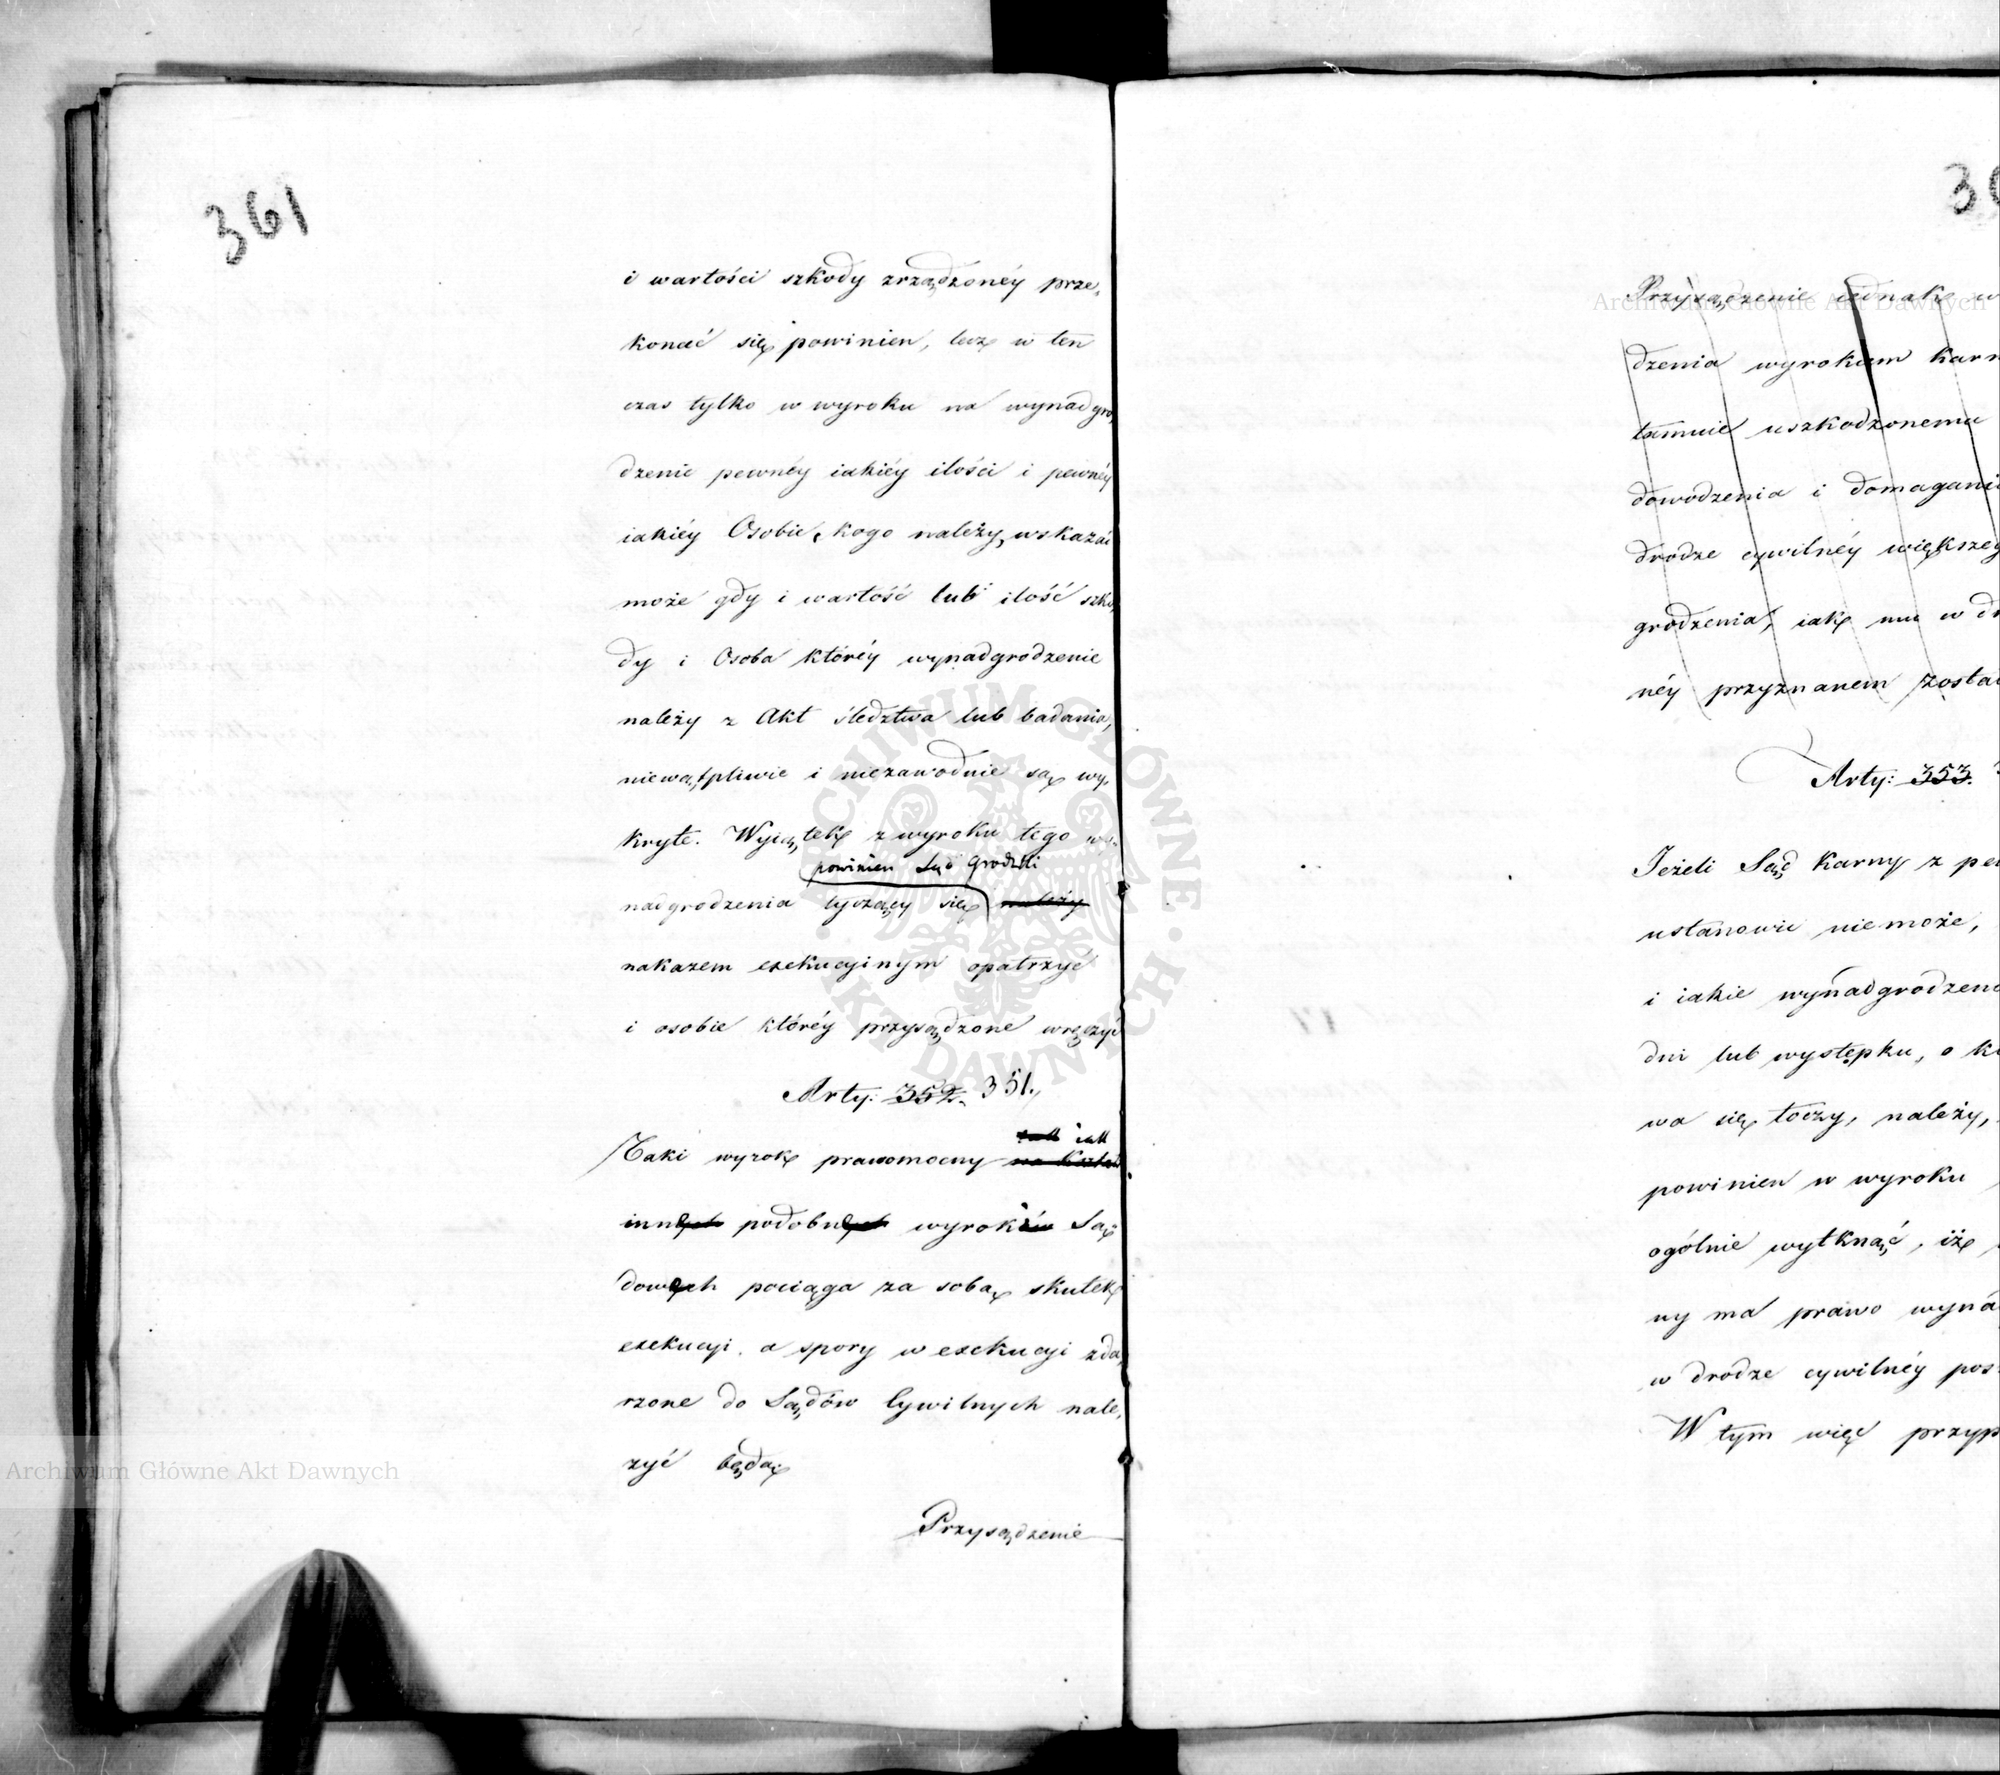 361
i wartości szkody zrządzonéy prze-
konać się powinien, lecz w ten
czas tylko w wyroku na wynadgro-
dzenie pewnéy iakiéy ilości i pewnéy
iakiéy Osobie, kogo należy, wskazać
może gdy i wartość lub ilość szko-
dy i Osoba któréy wynadgrodzenie
należy z Akt śledztwa lub badania,
niewątpliwie i niezawodnie są wy-
kryte. Wyiątek z wyroku tego wy-
powinien Sąd Grodzki
nadgrodzenia tyczący się należy
nakazem exekucyinym opatrzyć
i osobie któréy przysądzone wręczyć
Arty: 352. 351.
iak
Taki wyrok prawomocny na kształt
innych podobnych wyroków Są-
dowych pociąga za sobą skutek
exekucyi. a spory w exekucyi zda-
rzone do Sądów Cywilnych nale-
żyć będą.
Przysądzenie
Przysądzenie iednak w
dzenia wyrokiem karn
tamuie uszkodzonemu
dowodzenia i domagani
drodze cywilnéy większeg
grodzenia, iak mu w dr
néy przyznanem zosta
Arty: 353.
Jeżeli Sąd karny z pe
ustanowić nie może,
i iakie wynadgrodzeni
dni lub występku, o k
wa się toczy, należy,
powinien w wyroku
ogólnie wytknąć, iż
ny ma prawo wyna
w drodze cywilnéy pos
W tym więc przyp
Archiwum Główne Akt Dawnych
Archiwum Główne Akt Dawnych
ARCHIWUM GŁÓWNE AKT DAWNYCH